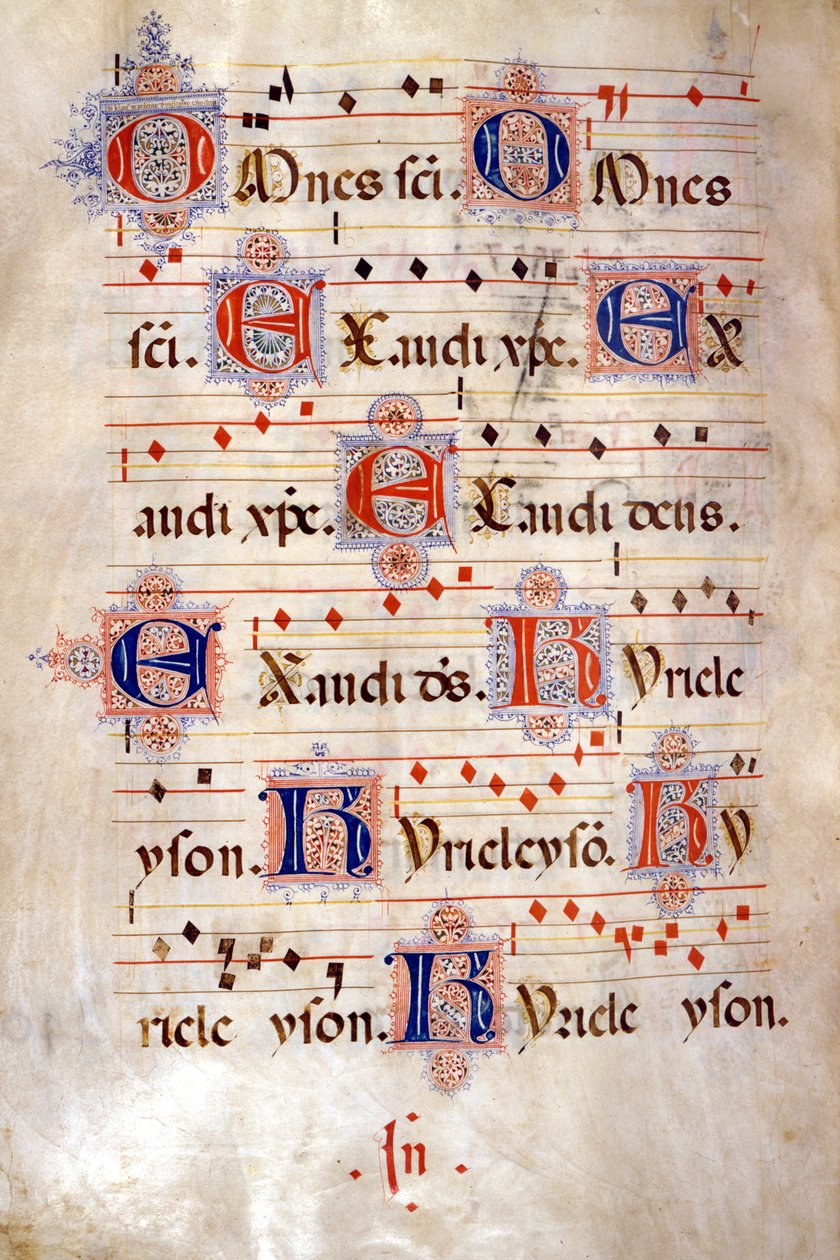 OMnes sc̄i. OMnes
sc̄i. EXaudi xp̄e. EX
audi xp̄e. EXaudi deus.
EXaudi ds̄. KYriele
yson. KYrieleysō. KY
riele yson. KYriele yson.
.In.